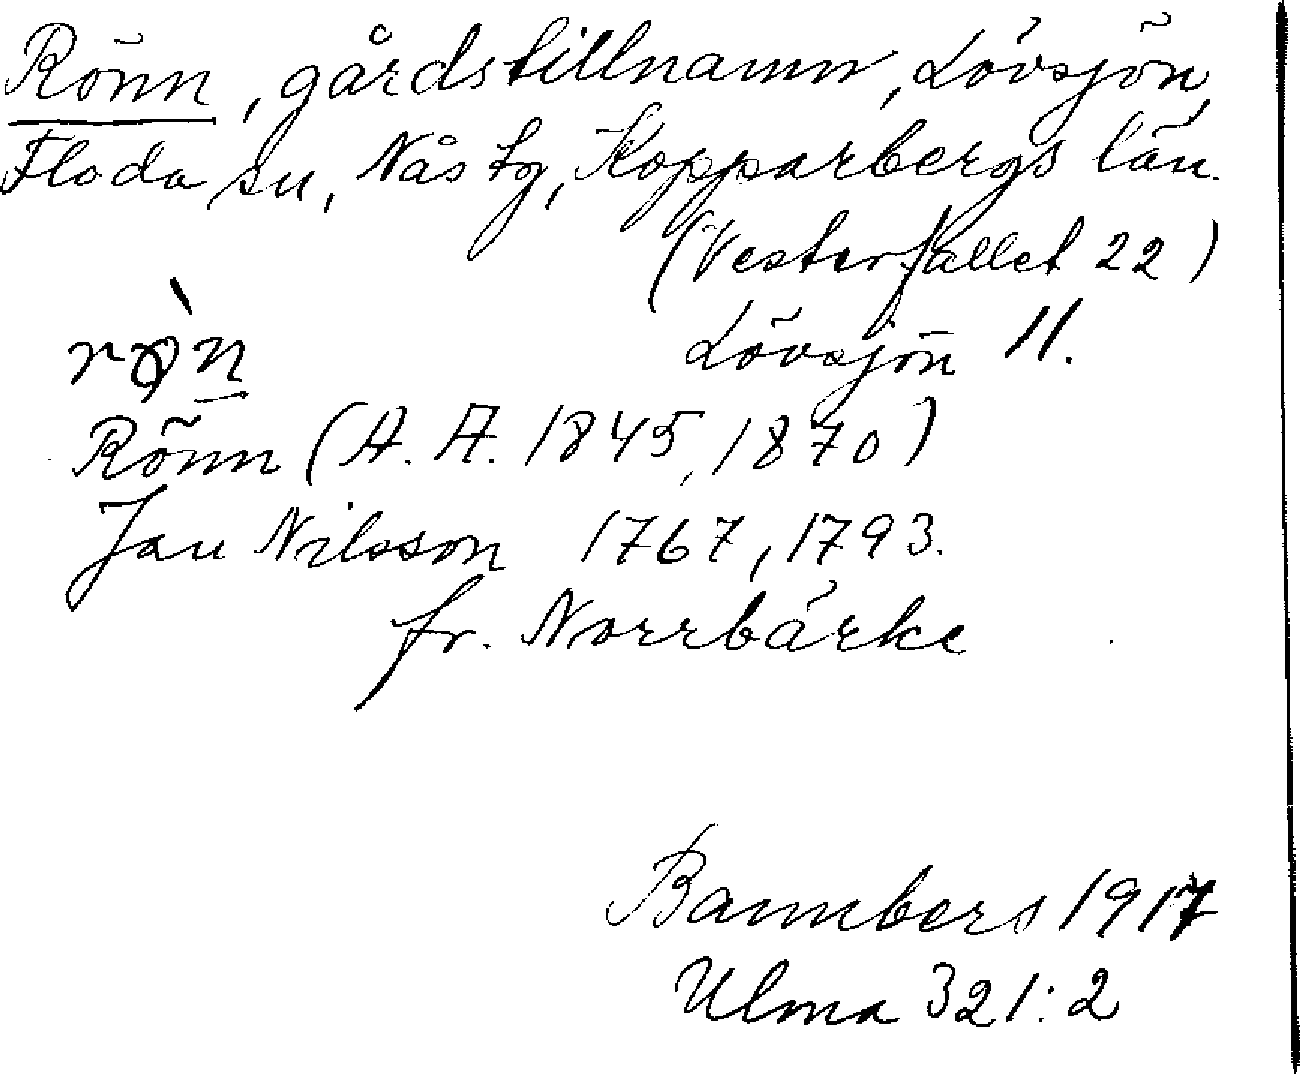 Rönn, gårdstillnamn, Lövsjön,
Floda sn, Nås tg, Kopparbergs län.
(Vesterfallet 22)
Lövsjön 11.
rø̀n
Rönn (A. A. 1845, 1870)
Jan Nilsson 1767, 1793.
fr. Norrbärke
Bannbers 1917
Ulma 321:2